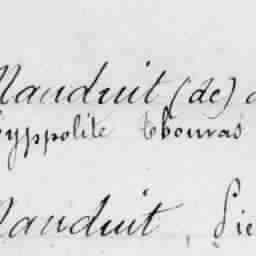 Mauduit (de)
hyppolite Thomas
Mauduit,